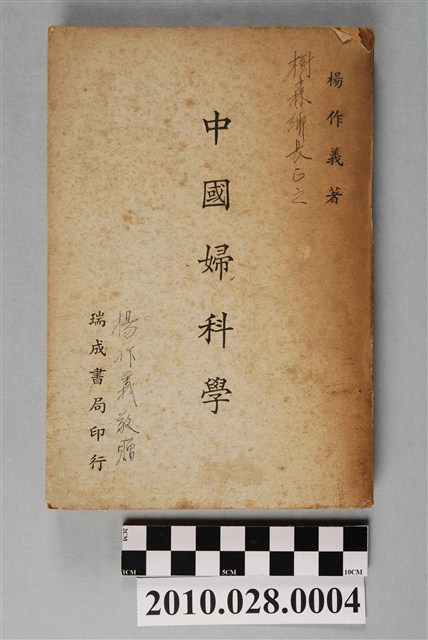 楊作義著
樹森鄉長正之
中國婦科學
楊作義敬贈
瑞成書局印行
2CM
1CM 5CM 10CM
2010.028.0004